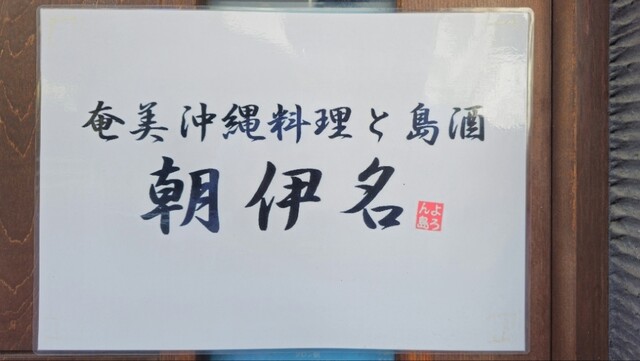 奄美沖縄料理と島酒
朝伊名
よろん島